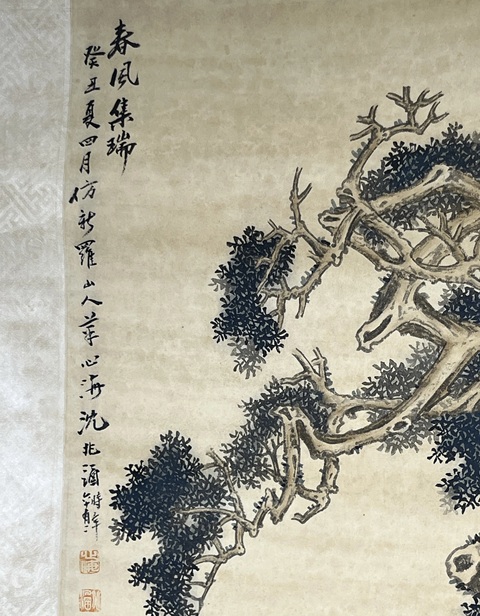 春風集瑞
癸丑夏四月仿新羅山人筆心海沈兆涵時年